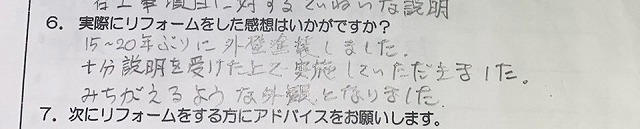 各工事項目に対するていねいな説明
6. 実際にリフォームをした感想はいかがですか？
15~20年ぶりに外壁塗装しました.
十分説明を受けた上で実施していただきました。
みちがえるような外観となりました.
7. 次にリフォームをする方にアドバイスをお願いします。